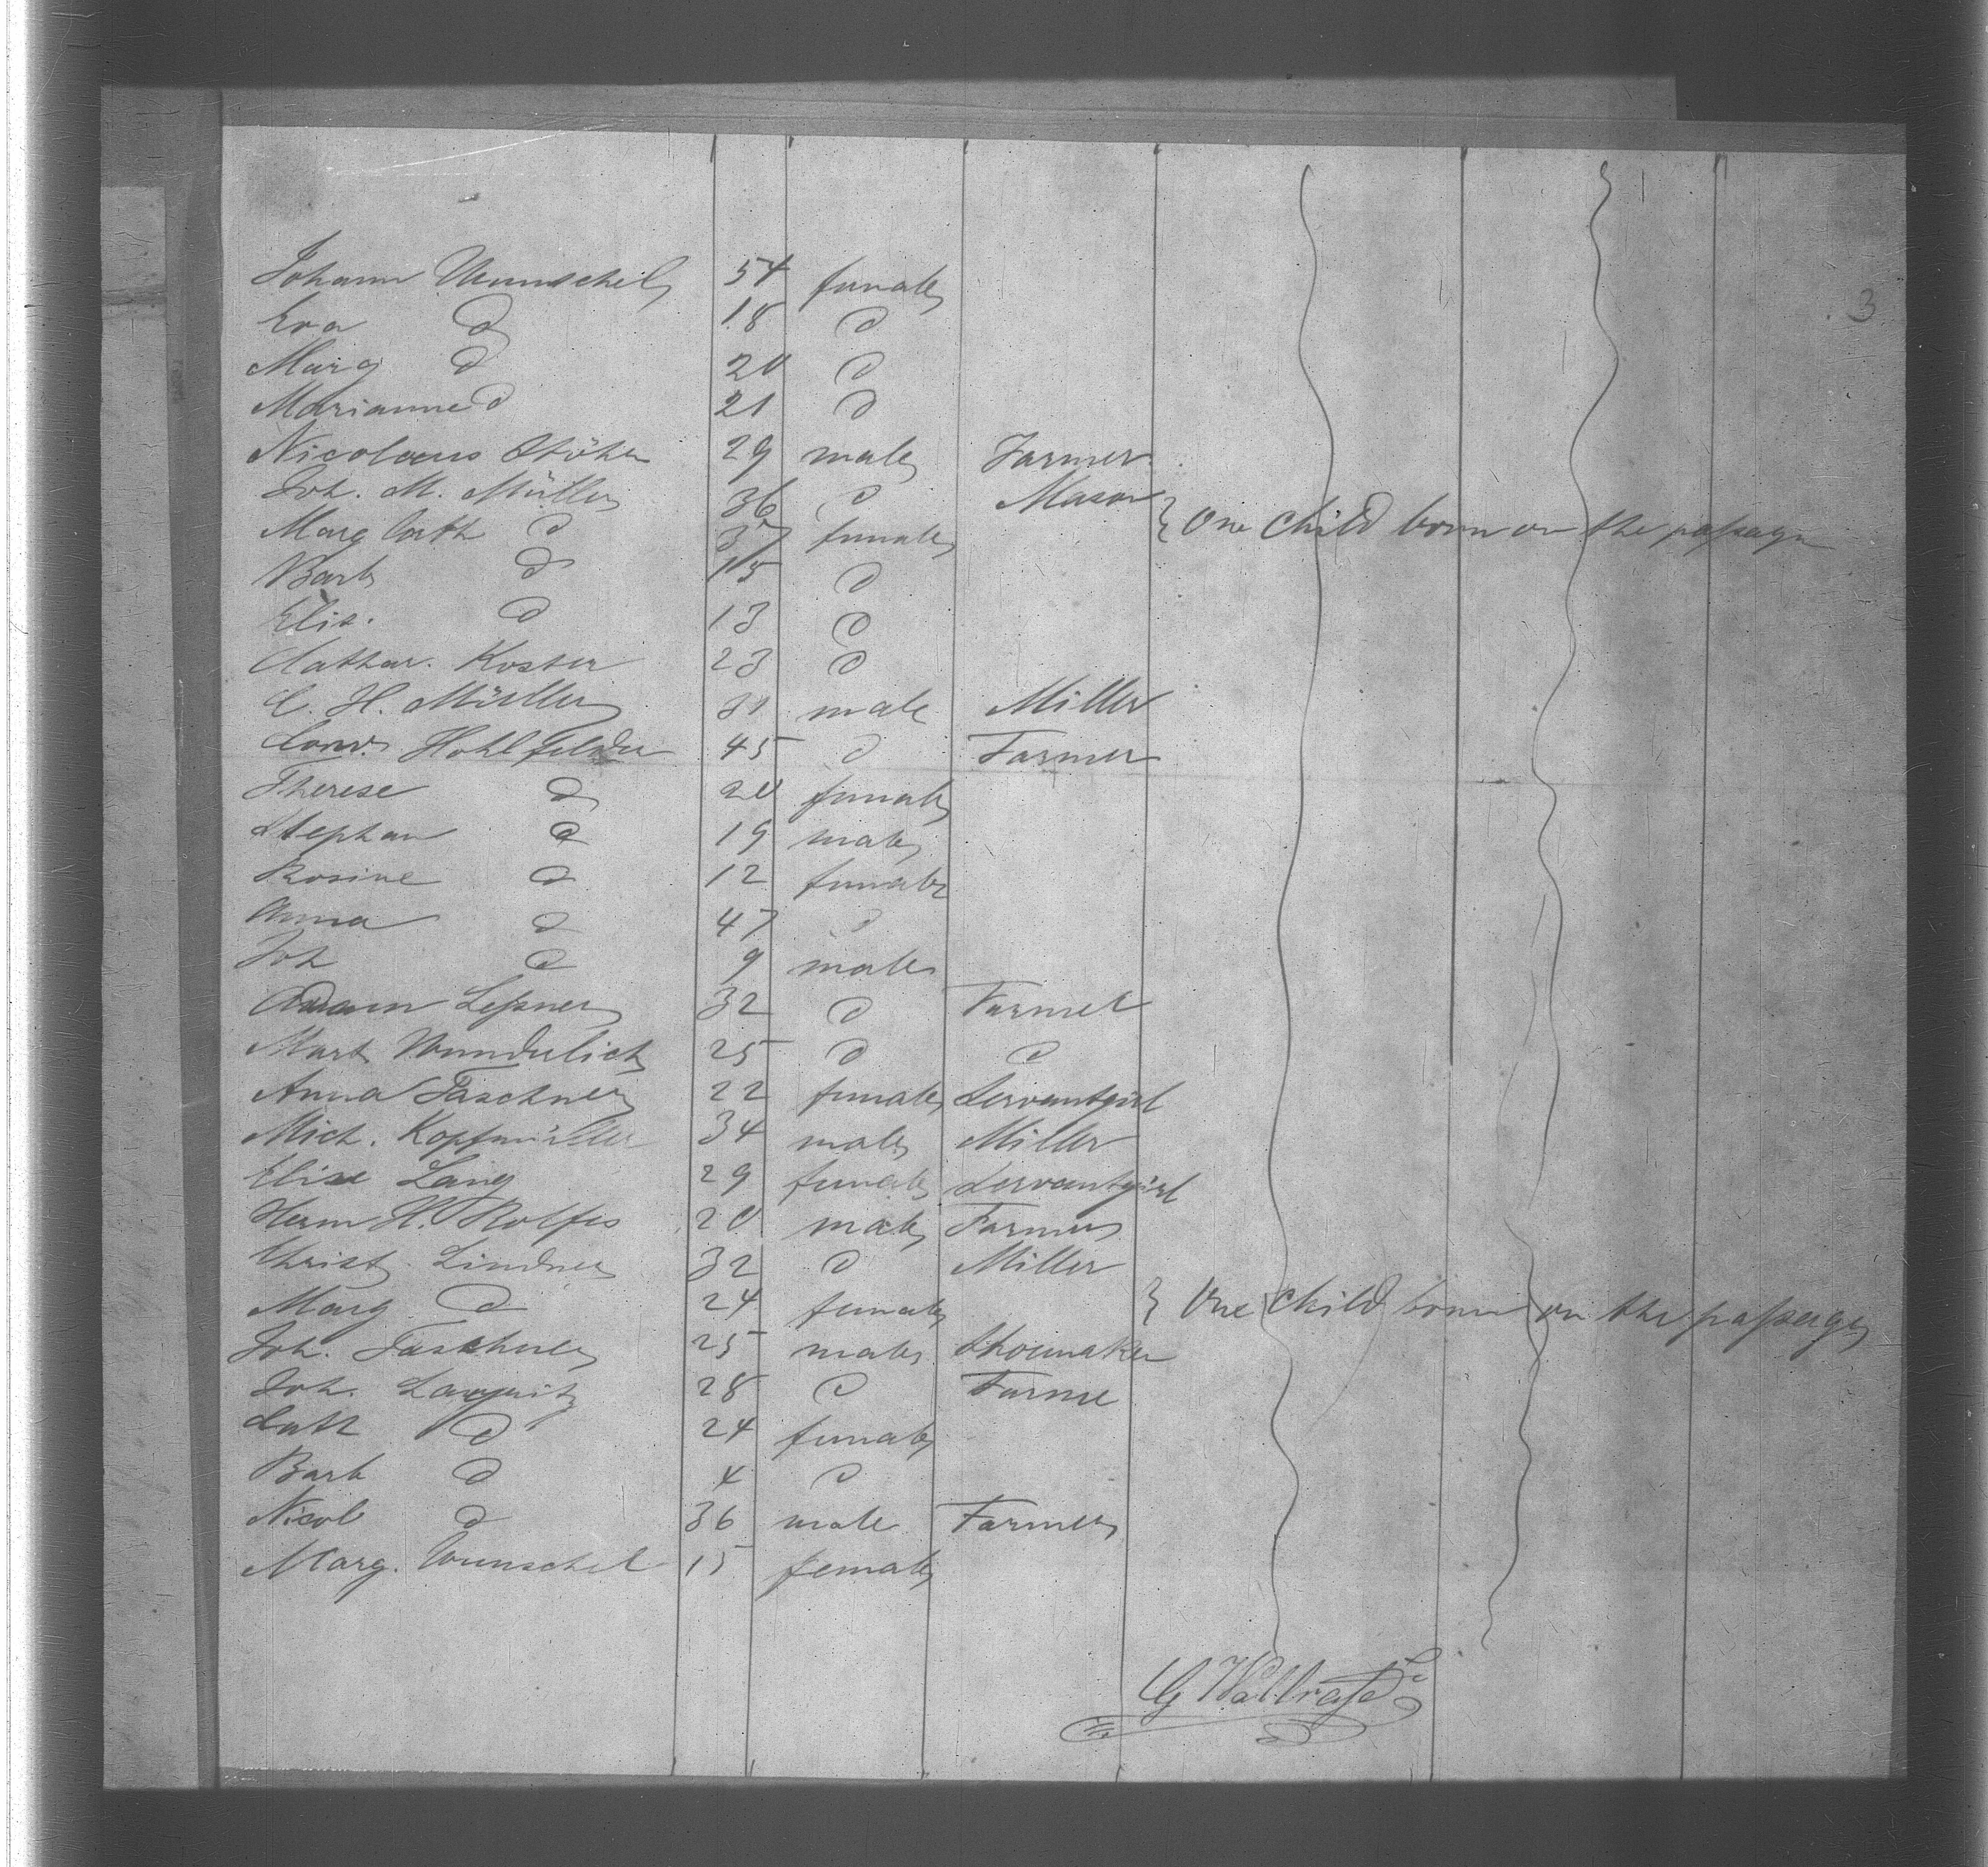 3
Johann Wunschel 54 female
Eva do 18 do
Marg do 20 do
Marianne do 21 do
Nicolaus Stöhr 29 male Farmer
Joh. M. Müller 36 do Mason
Marg Cath do 37 female } One child born on the passage
Barb do 15 do
Elis. do 13 do
Cathar. Koster 23 do
C. H. Müller 31 male Miller
Conr. Hohlfelder 45 do Farmer
Therese do 20 female
Stephan do 19 male
Rosine do 12 female
Anna do 47 do
Joh do 9 male
Adam Leßner 32 do Farmer
Mart Wunderlich 25 do do
Anna Taschner 22 female Servantgirl
Mich. Kopfmüller 34 male Miller
Elise Lang 29 female Servantgirl
Herm H. Rolfes 20 male Farmer
Christ. Lindner 32 do Miller
Marg do 24 female } One child born on the passage
Joh. Taschner 25 male Shoemaker
Joh. 28 do Farme
Cath do 24 female
Barb do 4 do
Nicol do 36 male Farmer
Marg. Wunschel 15 female